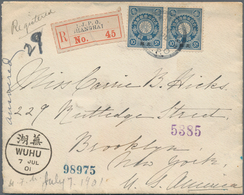 Registered
29
R
I.J.P.O.
SHANGHAI
No. 45
Answered
Miss Carrie B. Hicks,
229 Rutledge Street,
5385
Brooklyn
New York,
U. S. America
蕪湖
WUHU
7 JUL
01
98975
July 7, 1901